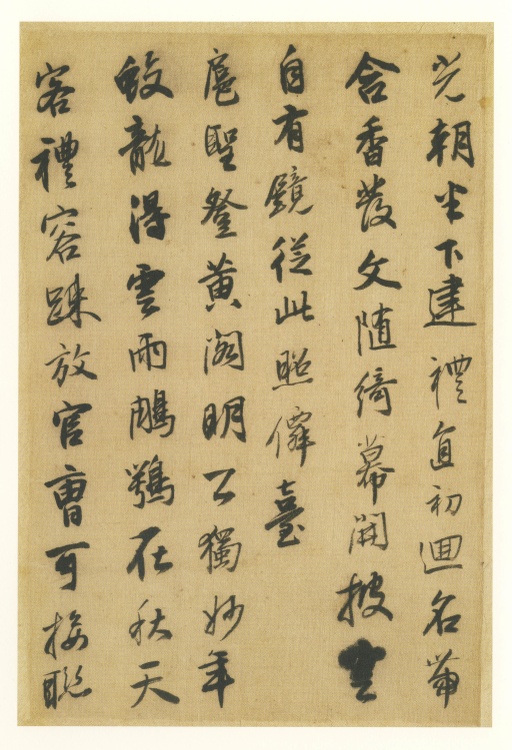 光朝半下建禮直初迴名帶
含香發文随綺幕開披雲
自有鏡從此照僊臺
扈聖登黄閣明公獨妙年
蛟龍得雲雨鵰鶚在秋天
客禮容踈放官曹可接聮